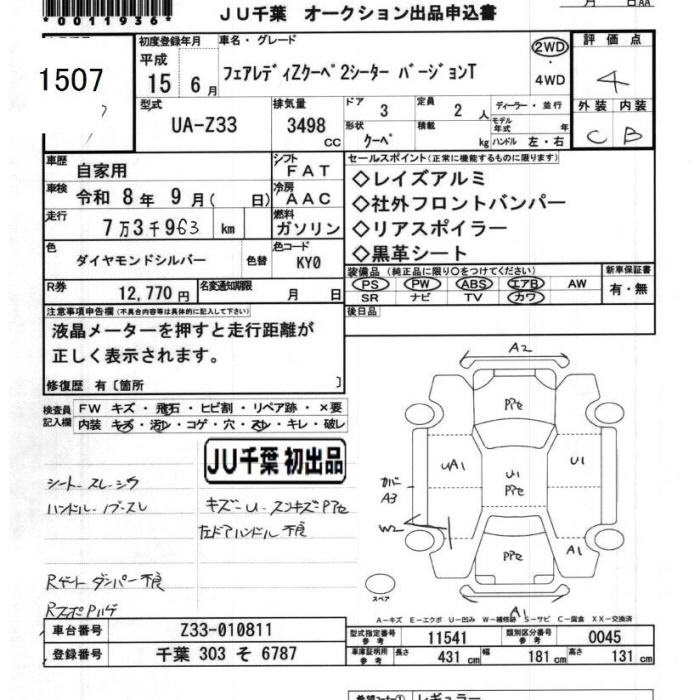 *0011936*
JU千葉 オークション出品申込書
月 日AA
1507
初度登録年月
平成
15 年 6 月
車名・グレード
フェアレディZクーペ 2シーター バージョンT
2WD
・
4WD
評価点
4
外装 内装
C B
型式
UA-Z33
排気量
3498
CC
ドア 3
形状 クーペ
定員 2 人
積載 kg
ディーラー・並行
モデル年式 年
ハンドル 左・右
車歴
自家用
シフト
FAT
車検
令和 8 年 9 月( 日)
冷房
AAC
走行
7万3千963 km
燃料
ガソリン
色
ダイヤモンドシルバー
色替
色コード
KY0
R券
12,770 円
名変通知期限
月 日
セールスポイント(正常に機能するものに限ります)
◇レイズアルミ
◇社外フロントバンパー
◇リアスポイラー
◇黒革シート
装備品(純正品に限り○をつけてください)
PS PW ABS エアB AW
SR ナビ TV カワ
新車保証書
有・無
後日品
注意事項申告欄(不具合内容等は具体的に記入して下さい)
液晶メーターを押すと走行距離が
正しく表示されます。
修復歴 有〔箇所 〕
検査員
記入欄
FW キズ・飛石・ヒビ割・リペア跡・×要
内装 キズ・汚レ・コゲ・穴・スレ・キレ・破レ
JU千葉 初出品
シート スレ・シワ
ハンドル・ノブ スレ
キズ・U・スンキズ・Pアセ
左ドアハンドル 不良
Rゲートダンパー不良
RスポPハゲ
A2
Pアセ
UA1
U1
Pアセ
U1
カバー
A3
W2
Pアセ
A1
A1
スペア
A－キズ E－エクボ U－凹み W－補修跡 S－サビ C－腐食 XX－交換済
車台番号
Z33-010811
登録番号
千葉 303 そ 6787
型式指定番号
参考
11541
類別区分番号
参考
0045
車庫証明用
参考
長さ 431 cm
幅 181 cm
高さ 131 cm
希望コーナー①
レギュラー